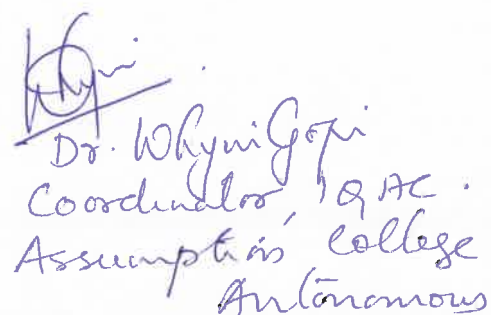 Dr. Whyni Gopi
Coordinator, IQAC.
Assumption College
Autonomous